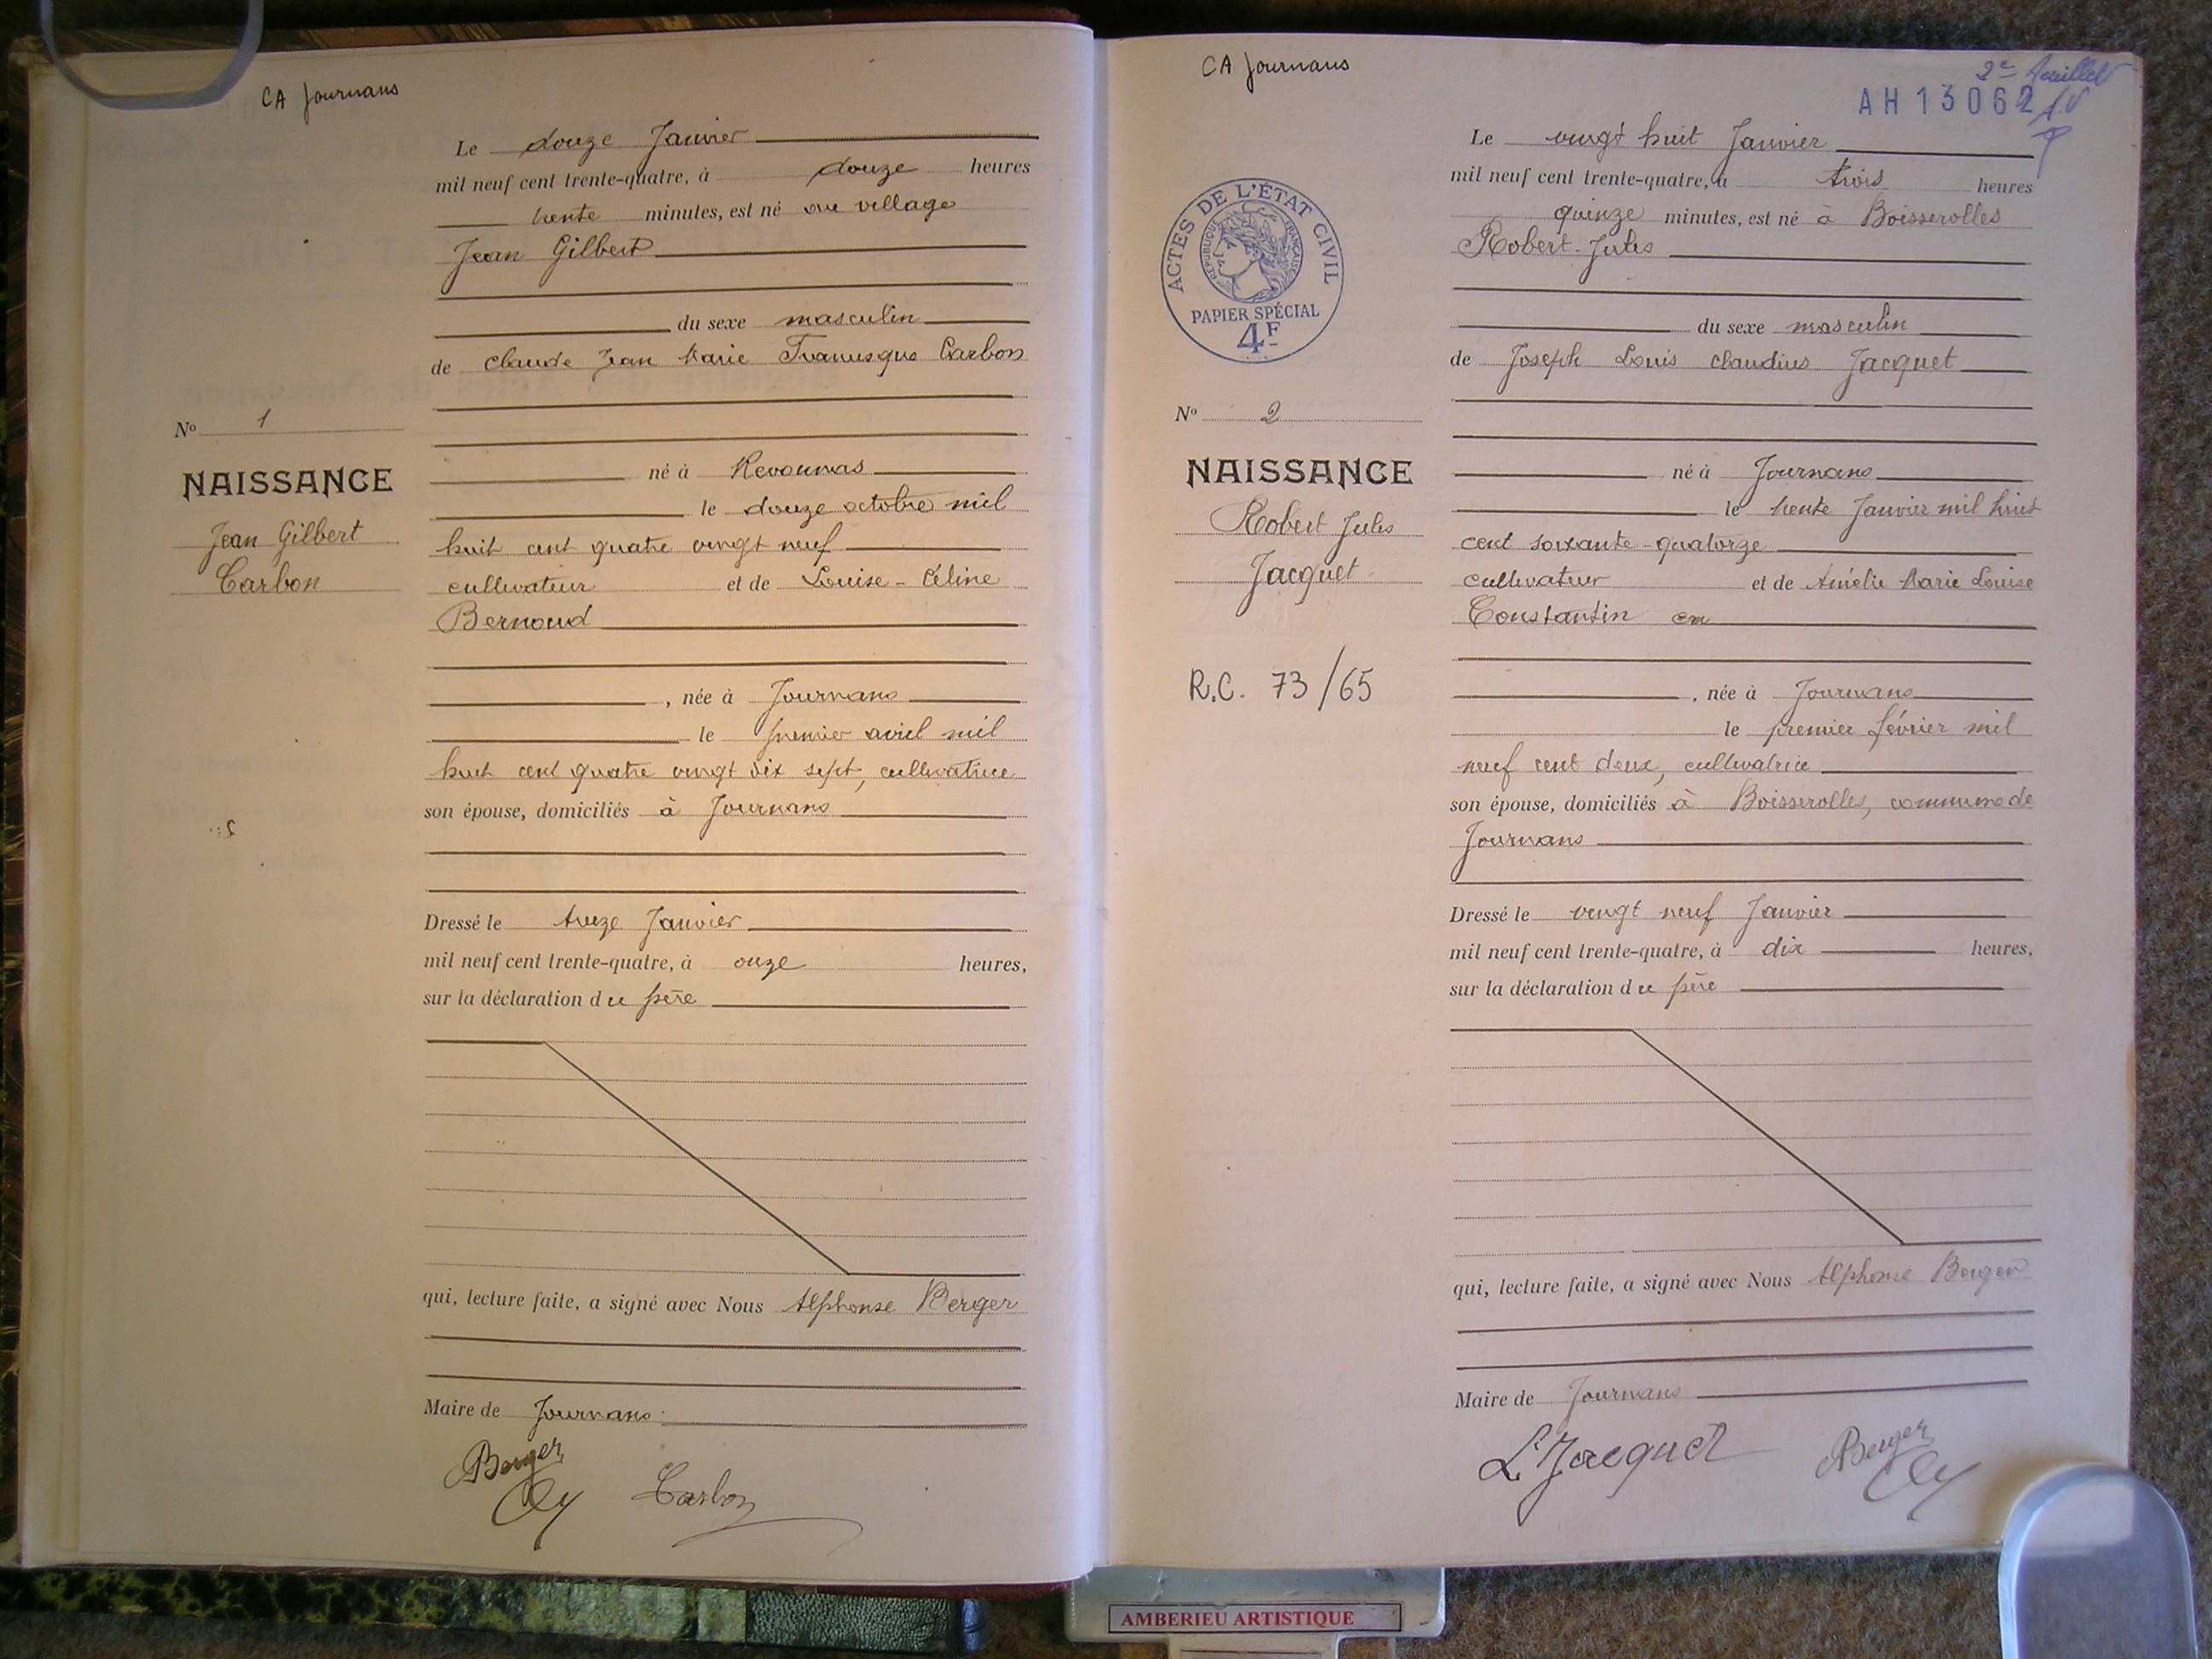 CA Journans
Le douze Janvier
mil neuf cent trente-quatre, à douze heures
trente minutes, est né au village
Jean Gilbert
du sexe masculin
de Claude Jean Marie Carbon
né à Revonnas
le douze octobre mil
huit cent quatre vingt neuf
cultivateur et de Louise-Céline
Bernoud
, née à Journans
le premier avril mil
huit cent quatre vingt dix sept, cultivatrice
son épouse, domiciliés à Journans
Dressé le treize Janvier
mil neuf cent trente-quatre, à onze heures,
sur la déclaration du père
qui, lecture faite, a signé avec Nous Alphonse Berger
Maire de Journans
Berger
Carbon
No 1
NAISSANCE
Jean Gilbert
Carbon
CA Journans
2e feuillet
AH 13062
ACTES DE L'ÉTAT CIVIL
RÉPUBLIQUE FRANÇAISE
PAPIER SPÉCIAL
4F
No 2
NAISSANCE
Robert Jules
Jacquet
R.C. 73/65
Le vingt huit Janvier
mil neuf cent trente-quatre, à trois heures
quinze minutes, est né à Boisserolles
Robert-Jules
du sexe masculin
de Joseph Louis Claudius Jacquet
né à Journans
le trente Janvier mil huit
cent soixante-quatorze
cultivateur et de Amélie Marie Louise
Constantin
, née à Journans
le premier février mil
neuf cent deux, cultivatrice
son épouse, domiciliés à Boisserolles, commune de
Journans
Dressé le vingt neuf Janvier
mil neuf cent trente-quatre, à dix heures,
sur la déclaration du père
qui, lecture faite, a signé avec Nous Alphonse Berger
Maire de Journans
L. Jacquet
Berger
AMBERIEU ARTISTIQUE